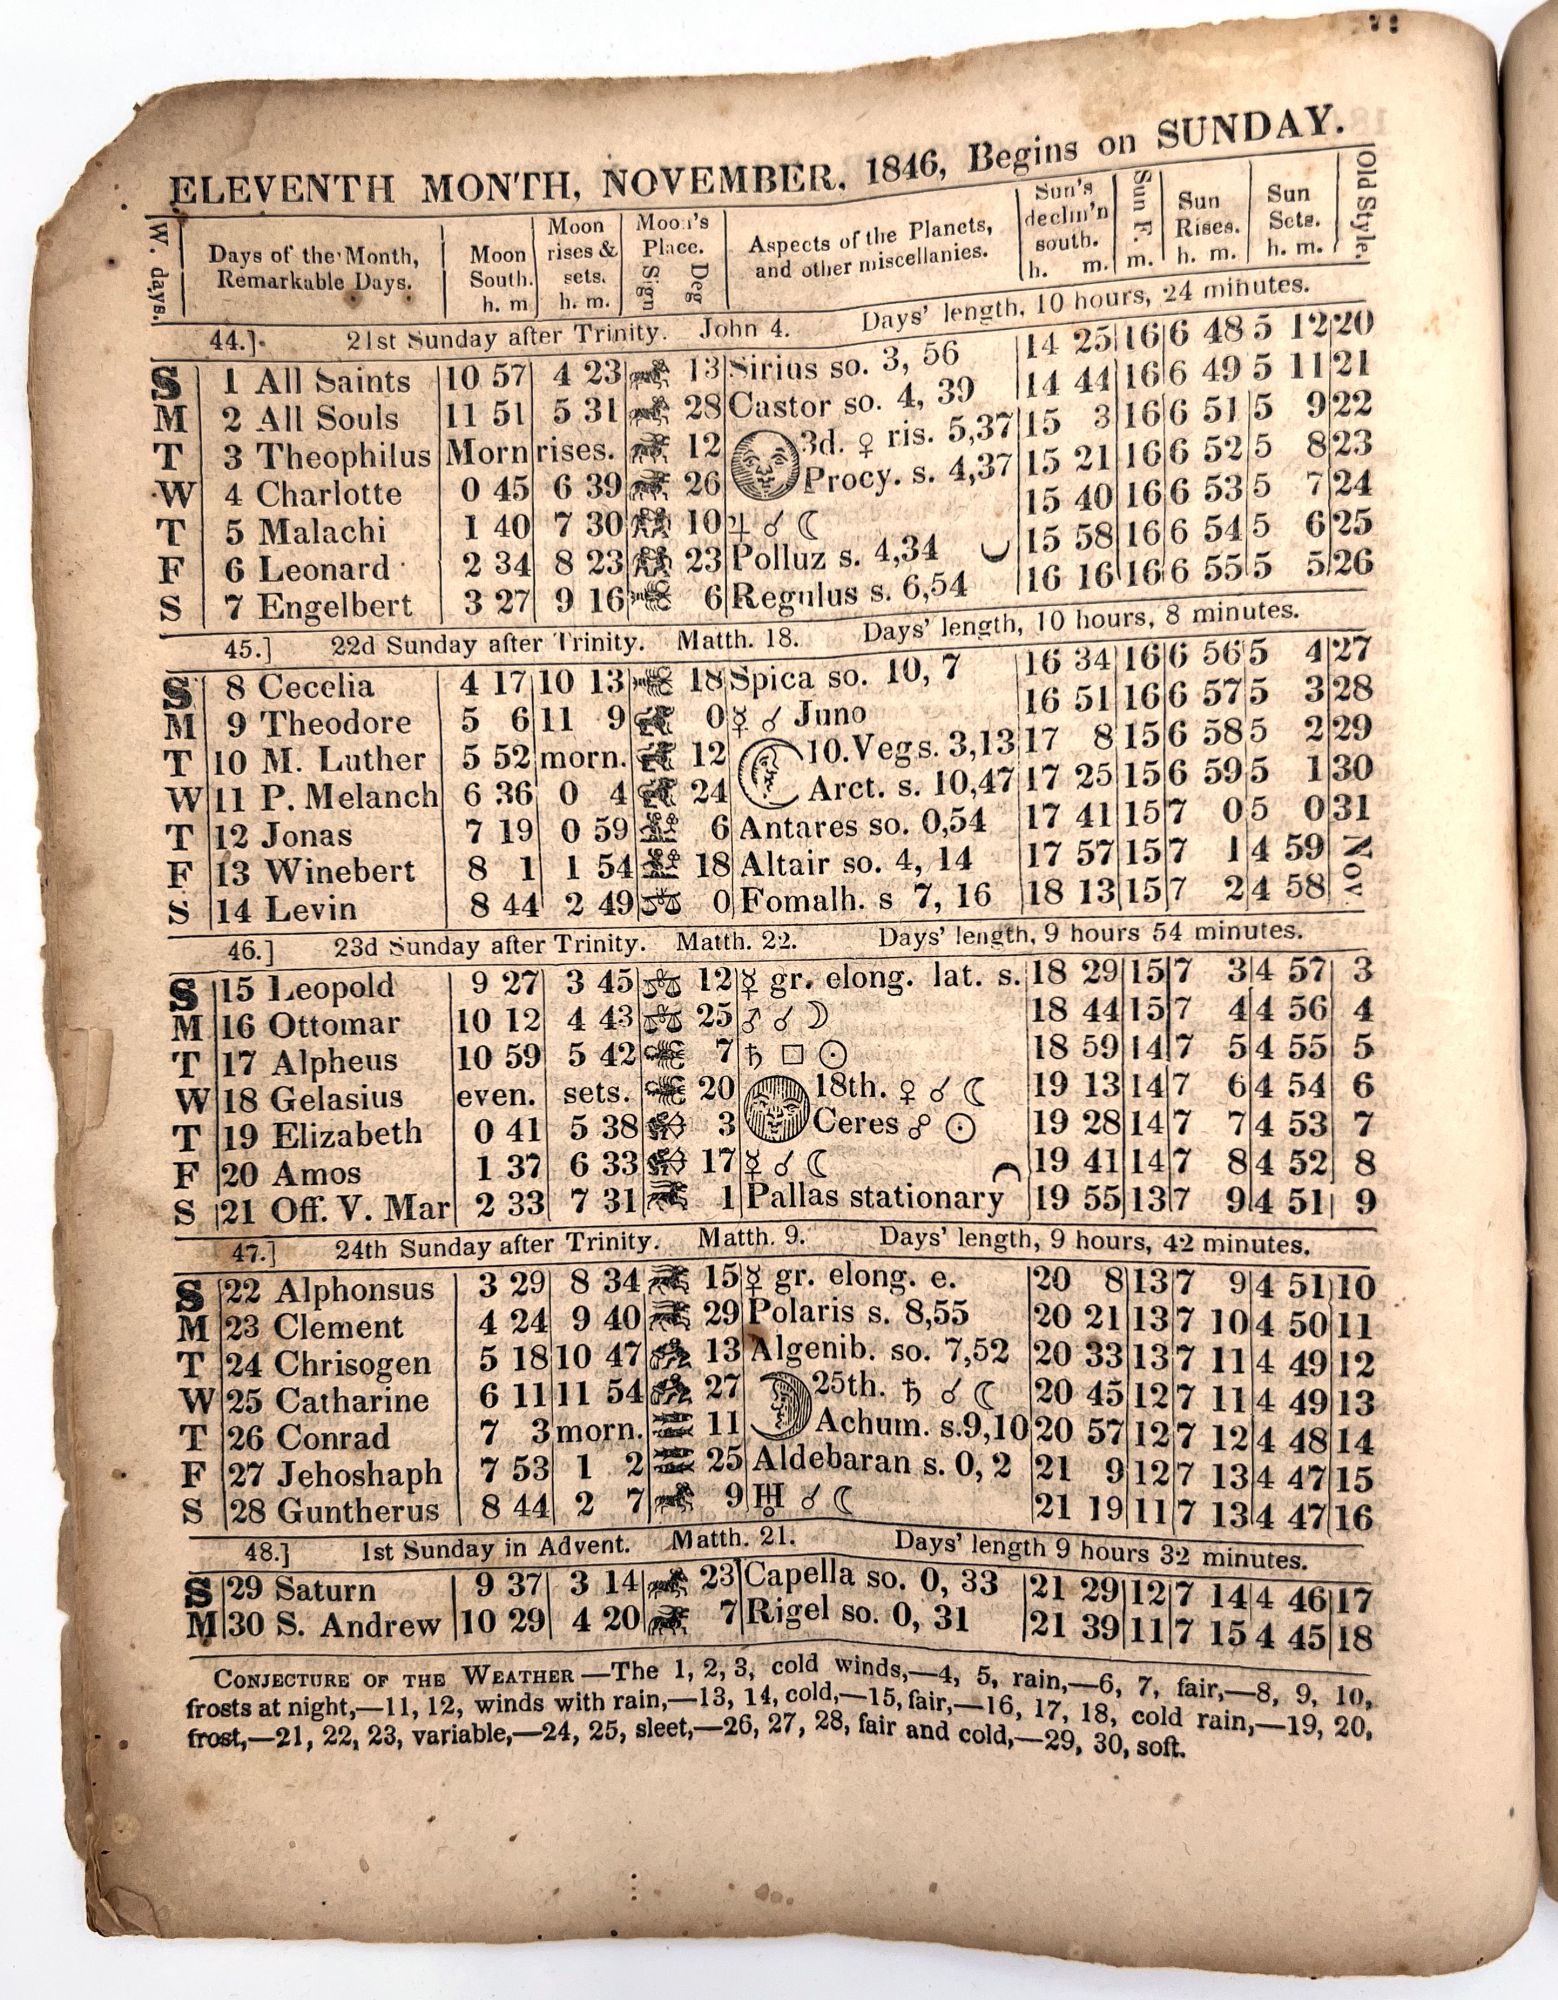 ELEVENTH MONTH, NOVEMBER, 1846, Begins on SUNDAY.
W. days. | Days of the Month, Remarkable Days. | Moon South. h. m | Moon rises & sets. h. m. | Moon's Place. Sign Deg | Aspects of the Planets, and other miscellanies. | Sun's declin'n south. h. m. | Sun F. m. | Sun Rises. h. m. | Sun Sets. h. m. | Old Style.
44.] 21st Sunday after Trinity. John 4. Days' length, 10 hours, 24 minutes.
S 1 All Saints 10 57 4 23 13 Sirius so. 3, 56 14 25 16 6 48 5 12 20
M 2 All Souls 11 51 5 31 28 Castor so. 4, 39 14 44 16 6 49 5 11 21
T 3 Theophilus Morn rises. 12 3d. ♀ ris. 5,37 15 3 16 6 51 5 9 22
W 4 Charlotte 0 45 6 39 26 Procy. s. 4,37 15 21 16 6 52 5 8 23
T 5 Malachi 1 40 7 30 10 ♃ ☌ ☾ 15 40 16 6 53 5 7 24
F 6 Leonard 2 34 8 23 23 Polluz s. 4,34 15 58 16 6 54 5 6 25
S 7 Engelbert 3 27 9 16 6 Regulus s. 6,54 16 16 16 6 55 5 5 26
45.] 22d Sunday after Trinity. Matth. 18. Days' length, 10 hours, 8 minutes.
S 8 Cecelia 4 17 10 13 18 Spica so. 10, 7 16 34 16 6 56 5 4 27
M 9 Theodore 5 6 11 9 0 ☿ ☌ Juno 16 51 16 6 57 5 3 28
T 10 M. Luther 5 52 morn. 12 10. Vegs. 3,13 17 8 15 6 58 5 2 29
W 11 P. Melanch 6 36 0 4 24 Arct. s. 10,47 17 25 15 6 59 5 1 30
T 12 Jonas 7 19 0 59 6 Antares so. 0,54 17 41 15 7 0 5 0 31
F 13 Winebert 8 1 1 54 18 Altair so. 4, 14 17 57 15 7 1 4 59 Nov.
S 14 Levin 8 44 2 49 0 Fomalh. s 7, 16 18 13 15 7 2 4 58
46.] 23d Sunday after Trinity. Matth. 22. Days' length, 9 hours 54 minutes.
S 15 Leopold 9 27 3 45 12 ☿ gr. elong. lat. s. 18 29 15 7 3 4 57 3
M 16 Ottomar 10 12 4 43 25 ♂ ☌ ☽ 18 44 15 7 4 4 56 4
T 17 Alpheus 10 59 5 42 7 ♄ □ ☉ 18 59 14 7 5 4 55 5
W 18 Gelasius even. sets. 20 18th. ♀ ☌ ☾ 19 13 14 7 6 4 54 6
T 19 Elizabeth 0 41 5 38 3 Ceres ☍ ☉ 19 28 14 7 7 4 53 7
F 20 Amos 1 37 6 33 17 ☿ ☌ ☾ 19 41 14 7 8 4 52 8
S 21 Off. V. Mar 2 33 7 31 1 Pallas stationary 19 55 13 7 9 4 51 9
47.] 24th Sunday after Trinity. Matth. 9. Days' length, 9 hours, 42 minutes.
S 22 Alphonsus 3 29 8 34 15 ☿ gr. elong. e. 20 8 13 7 9 4 51 10
M 23 Clement 4 24 9 40 29 Polaris s. 8,55 20 21 13 7 10 4 50 11
T 24 Chrisogen 5 18 10 47 13 Algenib. so. 7,52 20 33 13 7 11 4 49 12
W 25 Catharine 6 11 11 54 27 25th. ♄ ☌ ☾ 20 45 12 7 11 4 49 13
T 26 Conrad 7 3 morn. 11 Achum. s.9,10 20 57 12 7 12 4 48 14
F 27 Jehoshaph 7 53 1 2 25 Aldebaran s. 0, 2 21 9 12 7 13 4 47 15
S 28 Guntherus 8 44 2 7 9 ♅ ☌ ☾ 21 19 11 7 13 4 47 16
48.] 1st Sunday in Advent. Matth. 21. Days' length 9 hours 32 minutes.
S 29 Saturn 9 37 3 14 23 Capella so. 0, 33 21 29 12 7 14 4 46 17
M 30 S. Andrew 10 29 4 20 7 Rigel so. 0, 31 21 39 11 7 15 4 45 18
CONJECTURE OF THE WEATHER—The 1, 2, 3, cold winds,—4, 5, rain,—6, 7, fair,—8, 9, 10,
frosts at night,—11, 12, winds with rain,—13, 14, cold,—15, fair,—16, 17, 18, cold rain,—19, 20,
frost,—21, 22, 23, variable,—24, 25, sleet,—26, 27, 28, fair and cold,—29, 30, soft.